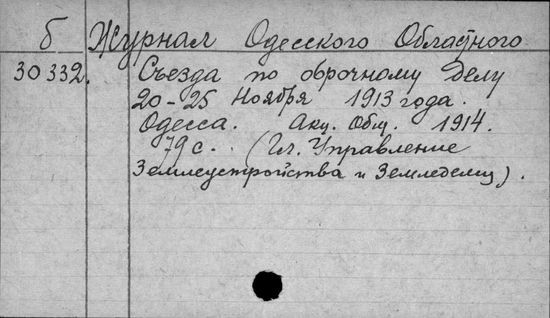 б Журнал Одесского Областного
30332. Съезда по оброчному делу
20-25 Ноября 1913 года.
Одесса. Акц. Общ. 1914.
79 с. (Гл. Управление
Землеустройства и Земледелия).